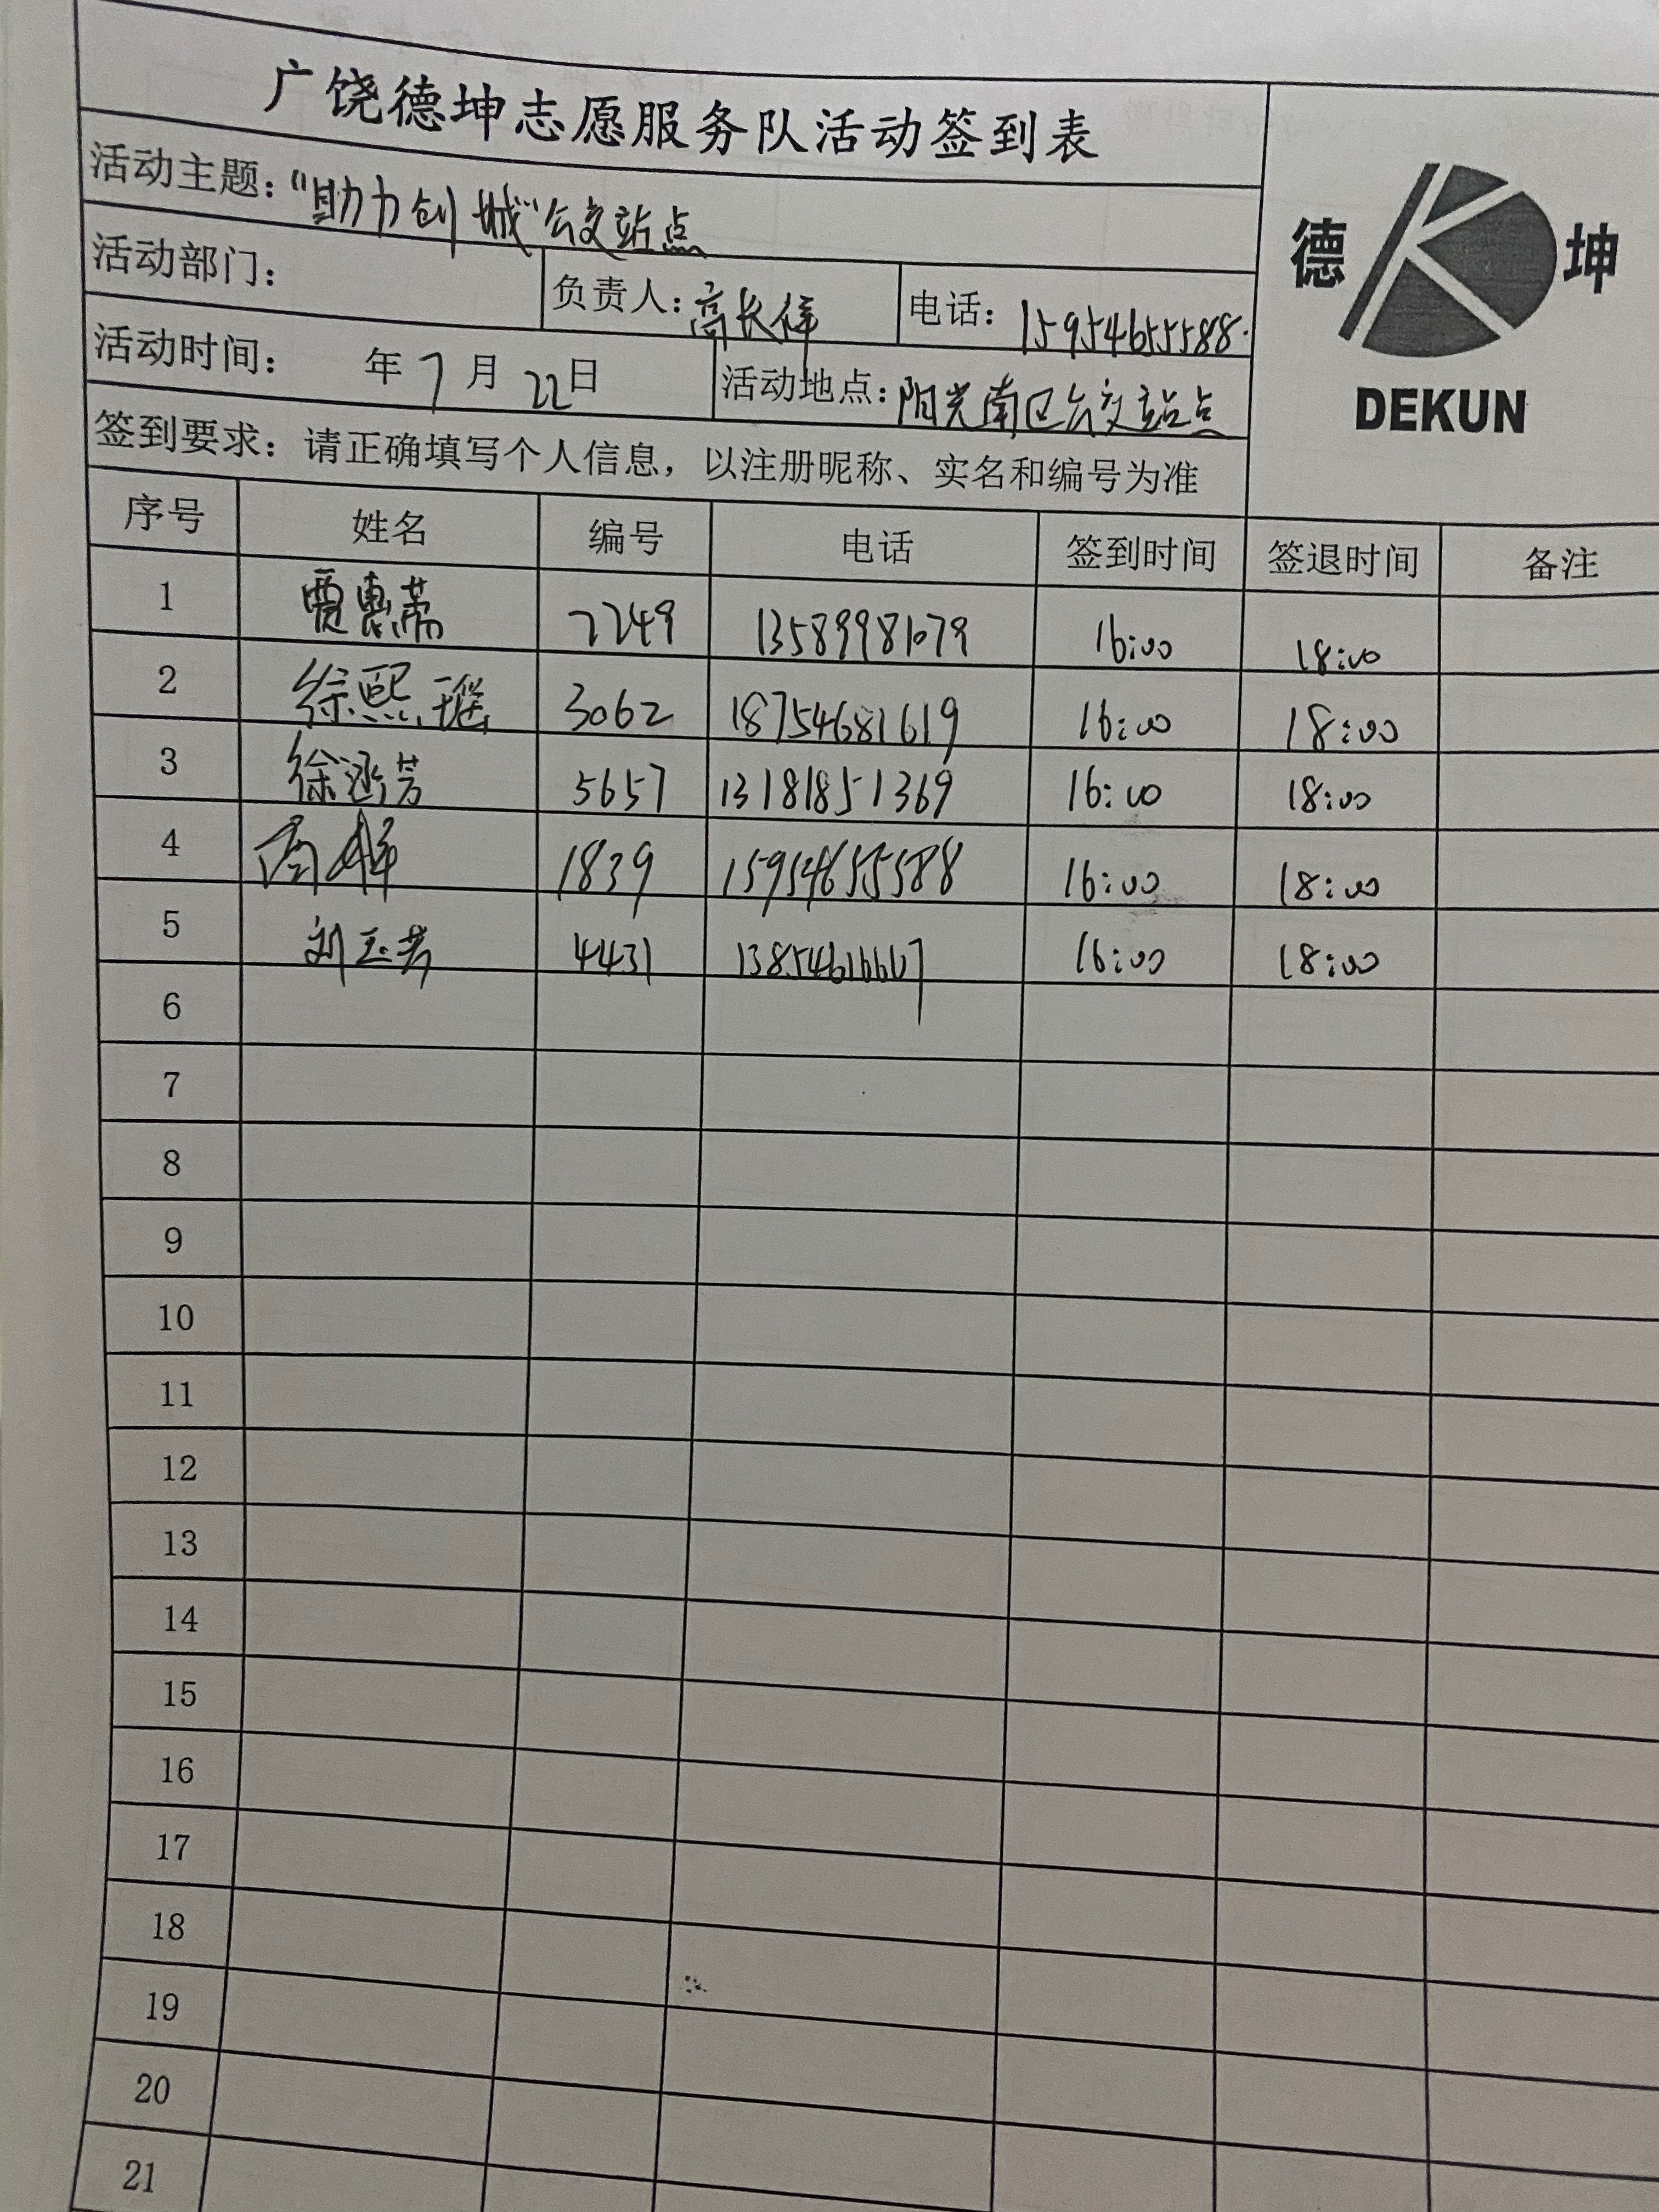 广饶德坤志愿服务队活动签到表
德 坤
DEKUN
活动主题：“助力创城”公交站点
活动部门： 负责人：高长偉 电话：15954655588.
活动时间： 年7月22日 活动地点：阳光南区公交站点
签到要求：请正确填写个人信息，以注册昵称、实名和编号为准
序号 姓名 编号 电话 签到时间 签退时间 备注
1 贾惠荣 7249 13589981079 16:00 18:00
2 徐熙瑶 3062 18754681619 16:00 18:00
3 徐涵芳 5657 13181851369 16:00 18:00
4 1839 15954655588 16:00 18:00
5 刘玉芳 4431 13854616667 16:00 18:00
6
7
8
9
10
11
12
13
14
15
16
17
18
19
20
21